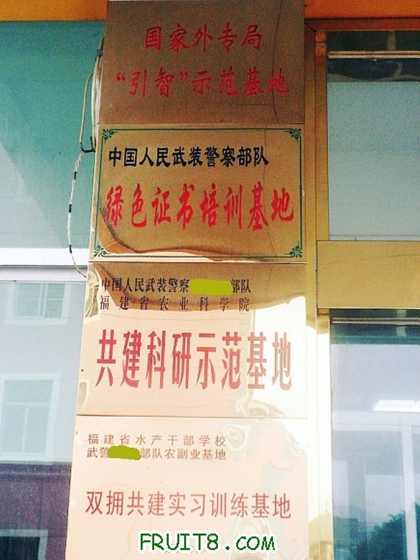 国家外专局
“引智”示范基地
中国人民武装警察部队
绿色证书培训基地
中国人民武装警察 部队
福建省农业科学院
共建科研示范基地
福建省水产干部学校
武警 部队农副业基地
双拥共建实习训练基地
FRUIT8.COM